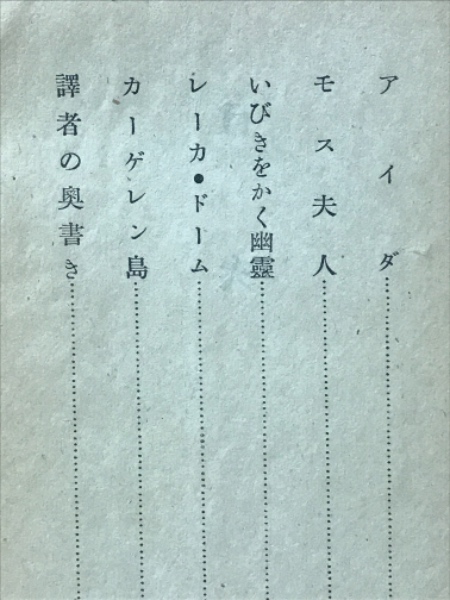 アイダ
モス夫人
いびきをかく幽靈
レーカ・ドーム
カーゲレン島
譯者の奧書き